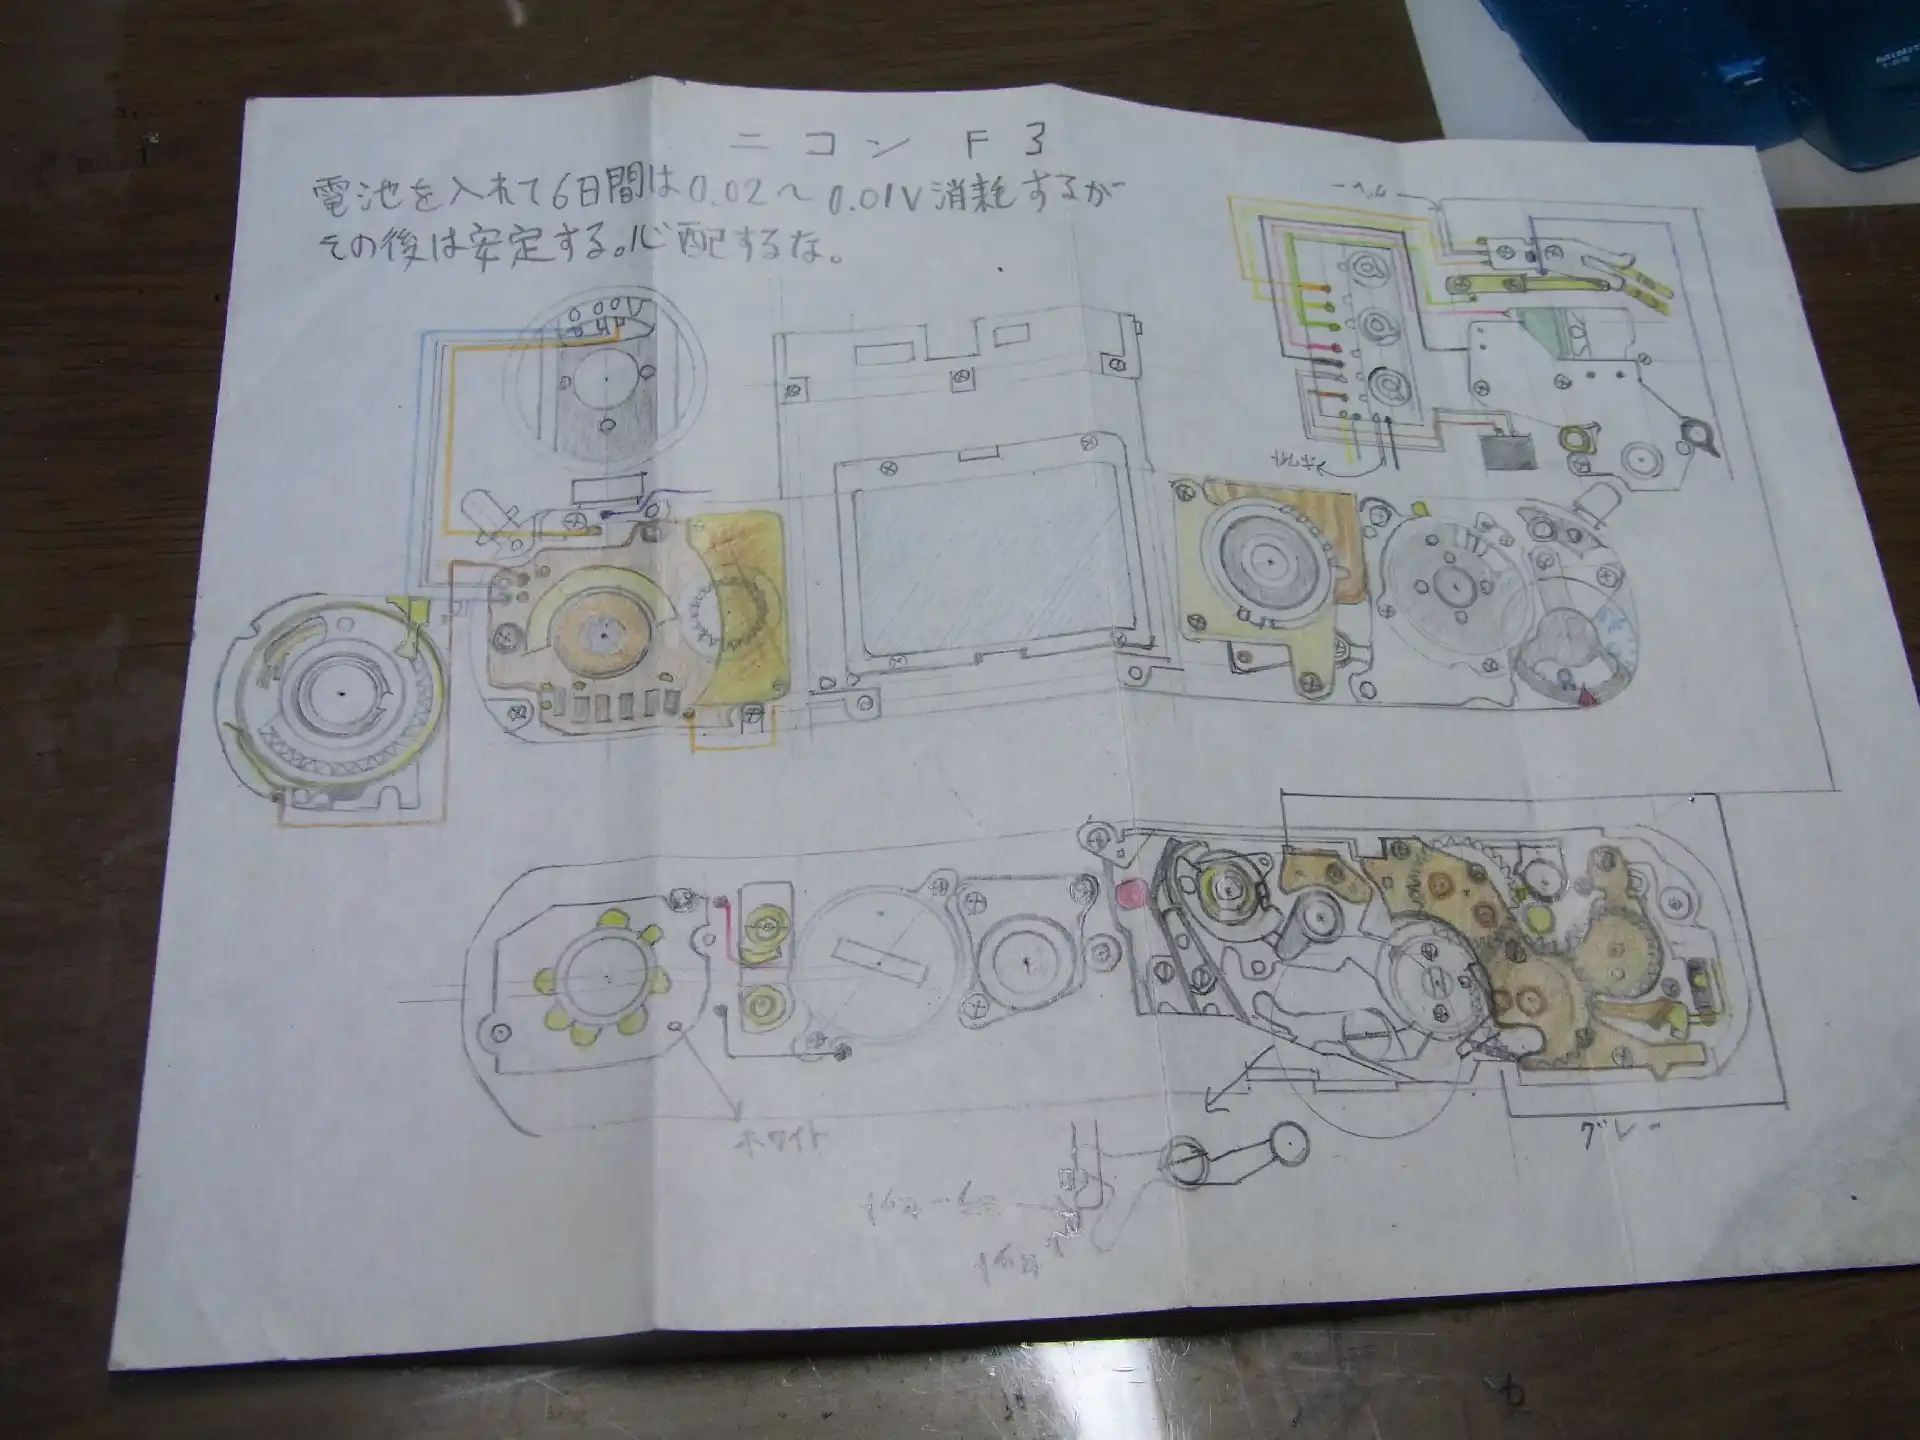 ニコン F3
電池を入れて6日間は0.02～0.01V消耗するが
その後は安定する。心配するな。
ホワイト
ホワイト
グレー